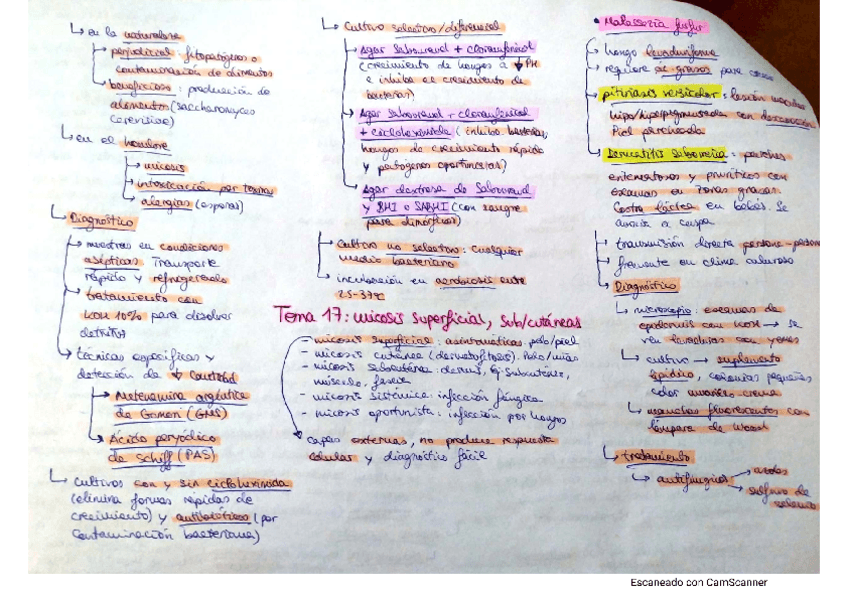 ↳ en la naturaleza
→ perjudicial: fitopatógenos o
contaminación de alimentos
→ beneficiosos: producción de
alimentos (saccharomyces
cerevisiae)
↳ en el hombre
→ micosis
→ intoxicación por toxinas
→ alergias (esporas)
↳ Diagnóstico
→ muestras en condiciones
asépticas. Transporte
rápido y refrigerado
→ tratamiento con
KOH 10% para disolver
detritus
↳ técnicas específicas y
detección de ↓ cantidad
→ Metenamina argéntica
de Gomori (GMS)
→ Ácido peryódico
de Schiff (PAS)
↳ cultivos con y sin cicloheximida
(elimina formas rápidas de
crecimiento) y antibióticos (por
contaminación bacteriana)
↳ Cultivo selectivo/diferencial
→ Agar Sabouraud + cloranfenicol
(crecimiento de hongos a ↓ PH
e inhibe el crecimiento de
bacterias)
→ Agar Sabouraud + cloranfenicol
+ cicloheximida (inhibe bacterias,
hongos de crecimiento rápido
y patógenos oportunistas)
→ Agar dextrosa de Sabouraud
y BHI o SABHI (con sangre
para dimórficos)
↳ cultivo no selectivo: cualquier
medio bacteriano
↳ incubación en aerobiosis entre
25-37ºC
Tema 17: micosis superficiales, sub/cutáneas
- micosis superficial: asintomáticas. pelo/piel
- micosis cutánea (dermatofitosis). Pelo/uñas
- micosis subcutánea: dermis, tej. subcutáneo,
músculo, fascia
- micosis sistémica: infección fúngica
- micosis oportunista: infección por hongos
capas externas, no produce respuesta
celular y diagnóstico fácil
• Malassezia furfur
→ hongo levaduriforme
→ requiere ác. grasos para
→ pitiriasis versicolor: lesión
hipo/hiperpigmentada con descamación
Piel parcheada
→ Dermatitis seborreica: parches
eritematosos y pruríticos con
escamas en zonas grasas.
Costra láctea en bebés. Se
asocia a caspa
→ transmisión directa persona-persona
→ frecuente en clima caluroso
→ Diagnóstico
↳ microscopio: escamas de
epidermis con KOH → se
ven levaduras con yemas
↳ cultivo → suplemento
lipídico, colonias pequeñas
color amarillo-crema
↳ manchas fluorescentes con
lámpara de Wood
↳ tratamiento
↳ antifúngicos → azoles
→ sulfuro de
selenio
Escaneado con CamScanner